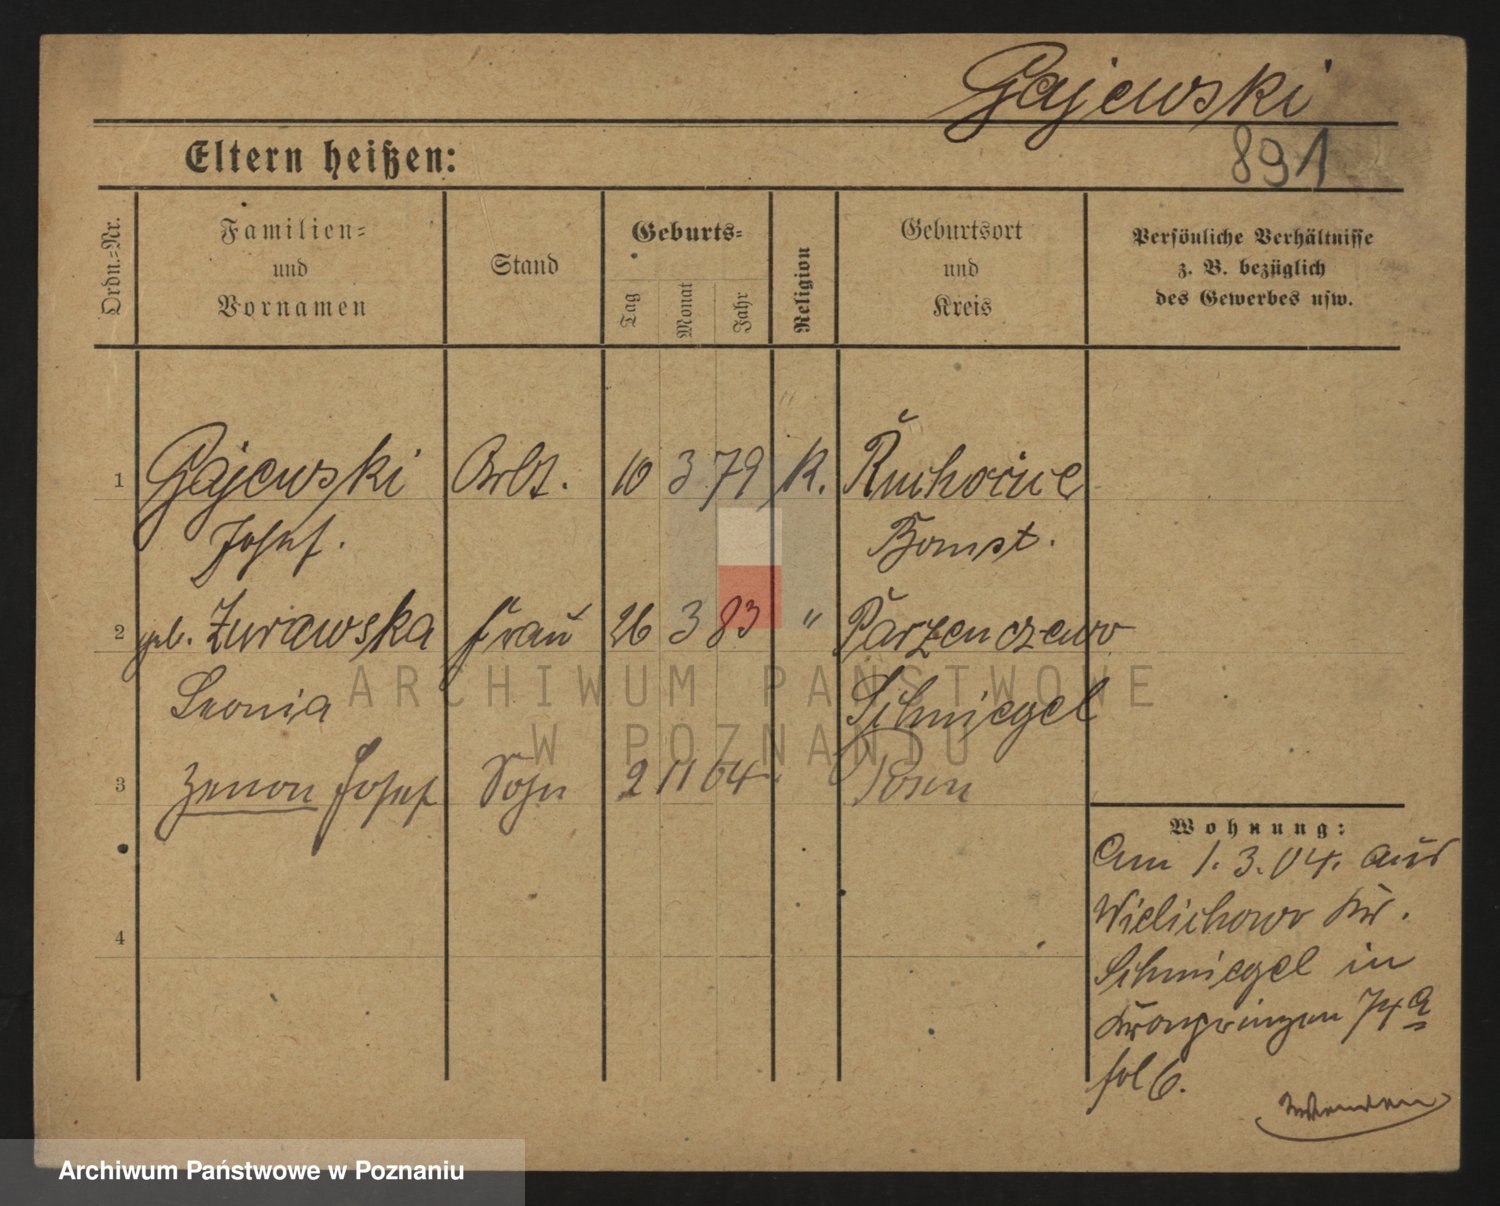 Gajewski
891
Eltern heißen:
Ordn.-Nr.
Familien-
und
Vornamen
Stand
Geburts-
Tag
Monat
Jahr
Religion
Geburtsort
und
Kreis
Persönliche Verhältnisse
z. B. bezüglich
des Gewerbes usw.
1 Gajewski Arbt. 10 3 79 K. Ruchocice
Josef. Bomst.
2 geb. Żurawska Frau 26 3 83 " Parzenczewo
Leonia Schmiegel
3 Zenon Josef Sohn 2 11 04 Posen
4
Wohnung:
Am 1. 3. 04. aus
Wielichowo Kr.
Schmiegel in
Kronprinzen 74a
fol 6.
wenden
ARCHIWUM PAŃSTWOWE
W POZNANIU
Archiwum Państwowe w Poznaniu